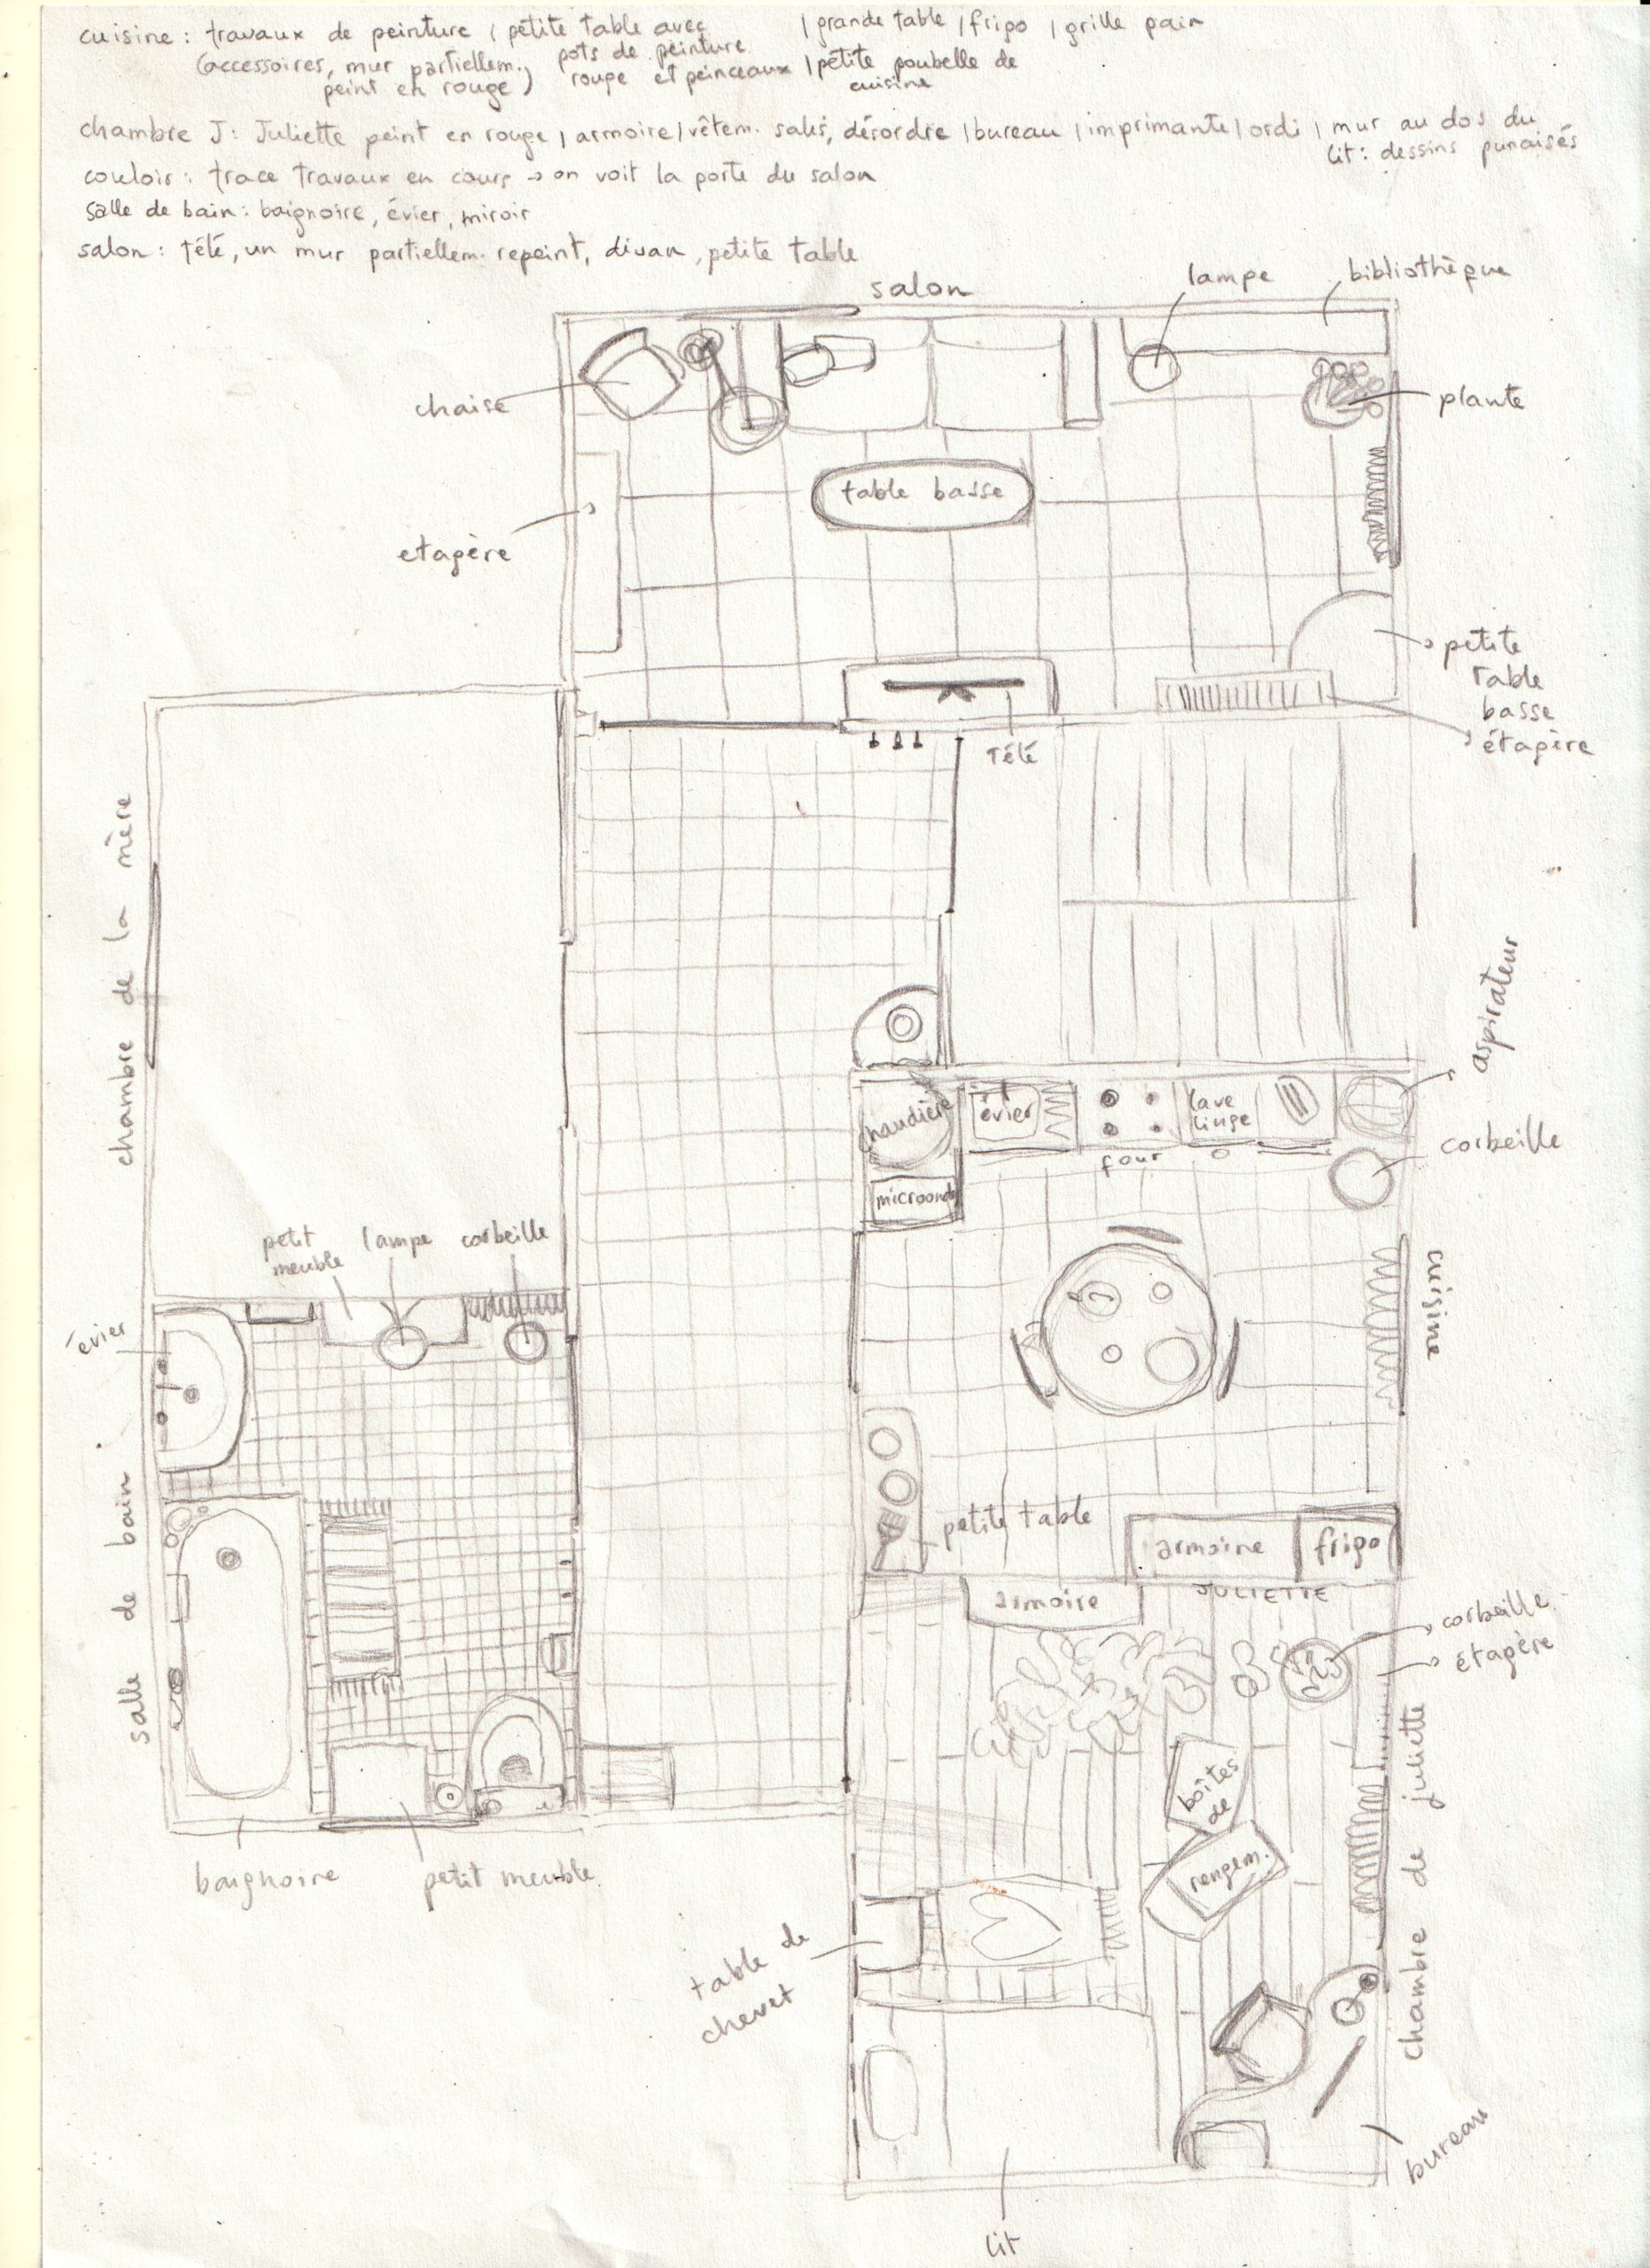 cuisine : travaux de peinture / petite table avec / grande table / frigo / grille pain
(accessoires, mur partiellem. pots de peinture
peint en rouge) rouge et peinceaux / petite poubelle de
cuisine
chambre J : Juliette peint en rouge / armoire / vêtem. sales, désordre / bureau / imprimante / ordi / mur au dos du
lit : dessins punaisés
couloir : trace travaux en cours → on voit la porte du salon
salle de bain : baignoire, évier, miroir
salon : télé, un mur partiellem. repeint, divan, petite table
salon
lampe
bibliothèque
chaise
plante
table basse
etagère
petite
table
basse
étagère
télé
chambre de la mère
aspirateur
chaudière
évier
lave
linge
four
corbeille
microond
cuisine
petit
meuble
lampe
corbeille
évier
salle de bain
petite table
armoire
frigo
armoire
JULIETTE
corbeille
étagère
boîtes
de
rangem.
chambre de juliette
baignoire
petit meuble
table de
chevet
bureau
lit